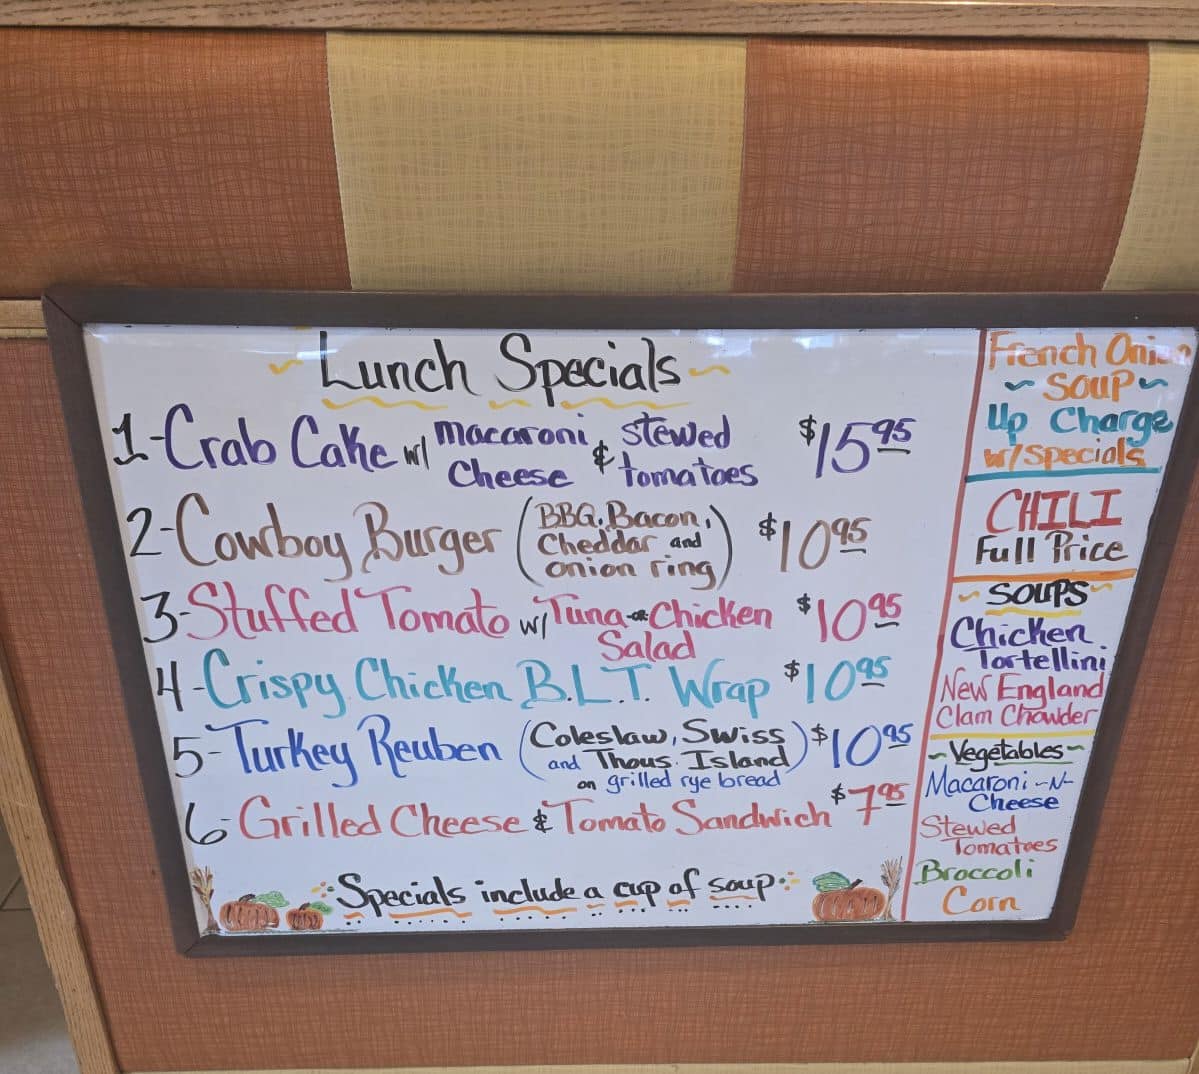 Lunch Specials
1-Crab Cake w/ macaroni & stewed $15.95
Cheese tomatoes
2-Cowboy Burger (BBQ, Bacon, $10.95
Cheddar and
onion ring)
3-Stuffed Tomato w/ Tuna or Chicken $10.95
Salad
4-Crispy Chicken B.L.T. Wrap $10.95
5-Turkey Reuben (Coleslaw, Swiss $10.95
and Thous. Island)
on grilled rye bread
6-Grilled Cheese & Tomato Sandwich $7.95
Specials include a cup of soup
French Onion
~ Soup ~
Up Charge
w/Specials
CHILI
Full Price
~ SOUPS ~
Chicken
Tortellini
New England
Clam Chowder
~Vegetables~
Macaroni -N-
Cheese
Stewed
Tomatoes
Broccoli
Corn